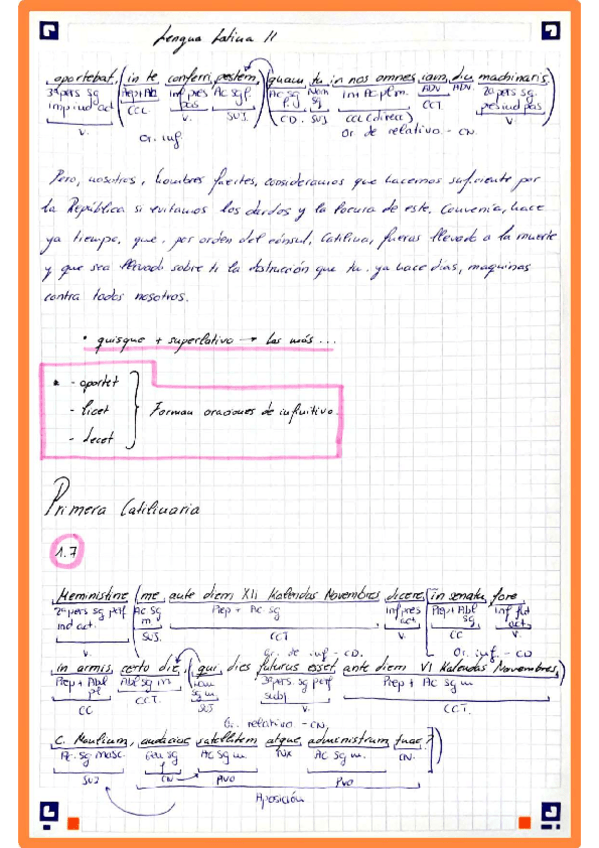 Lengua Latina II
oportebat, (in te conferri pestem, (quam tu in nos omnes iam diu machinaris.
3ª pers sg Prep+Abl inf pres Ac Sg f. Ac Sg Nom in+Ac pl m. ADV ADV. 2ª pers sg.
imp ind act pas f sg pres ind pas
V. CCL V. SUJ. CD. SUJ CCL (direcc) CCT. V.
Or. inf Or de relativo - CN.
Pero, nosotros, hombres fuertes, consideramos que hacemos suficiente por
la República si evitamos los dardos y la locura de este. Convenía, hace
ya tiempo, que, por orden del cónsul, Catilina, fueras llevado a la muerte
y que sea llevado sobre ti la destrucción que tu, ya hace días, maquinas
contra todos nosotros.
• quisque + superlativo → Los más ...
* - oportet
- licet Forman oraciones de infinitivo.
- decet
Primera Catilinaria
1.7
Meministine (me, ante diem XII Kalendas Novembres dicere, (in senatu, fore
2ª pers sg perf Ac Sg Prep + Ac sg inf pres Prep + Abl inf fut
ind act. m act. sg act.
V. SUJ. CCT V. CC V.
Or. de inf - CD. Or. inf. - CD
in armis, certo die, (qui, dies futurus esset, ante diem VI Kalendas Novembres,)
Prep + Abl Abl sg m nom 3ª pers. sg Prep + Ac sg m
pl sg m. subj
CC CCT. SUJ V. CCT.
Or. relativo - CN,
C. Manlium, audaciae satellitem atque administrum tuae?
Ac. Sg masc. Gen sg Ac Sg m. Nx Ac Sg m. CN.
f
SUJ CN Nvo Nvo
Aposición